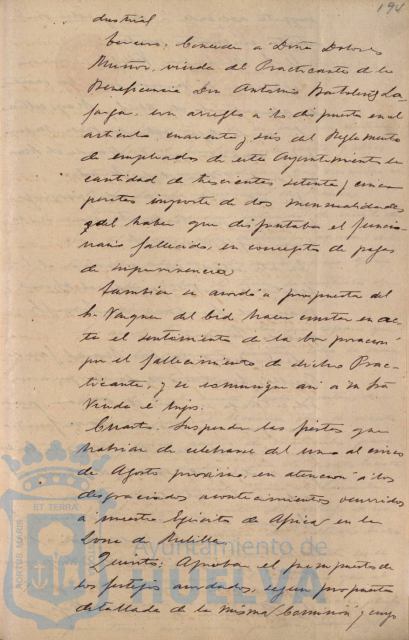 194
dustrial
Tercero: Conceder a Doña Dolores
Muñoz, viuda del Practicante de la
Beneficencia Don Antonio Bartolomé La-
farga, con arreglo a lo dispuesto en el
artículo cuarenta y seis del Reglamento
de empleados de este Ayuntamiento la
cantidad de trescientas setenta y cinco
pesetas importe de dos mensualidades
del haber que disfrutaba el funcio-
nario fallecido, en concepto de pagas
de supervivencia
También se acordó a propuesta del
Sr. Vazquez del Cid hacer constar en ac-
ta el sentimiento de la Corporación
por el fallecimiento de dicho Prac-
ticante, y se comunique así a su Sra
Viuda é hijos.
Cuarto: Suspender las fiestas que
habrían de celebrarse del uno al cinco
de Agosto proximo, en atencion a los
desgraciados acontecimientos ocurridos
a nuestro Ejército de Africa en la
zona de Melilla
Quinto: Aprobar el presupuesto de
los festejos acordados, segun propuesta
detallada de la misma Comisión, y cuyo
ET TERRA
PORTUS MARIS
Ayuntamiento de
HUELVA